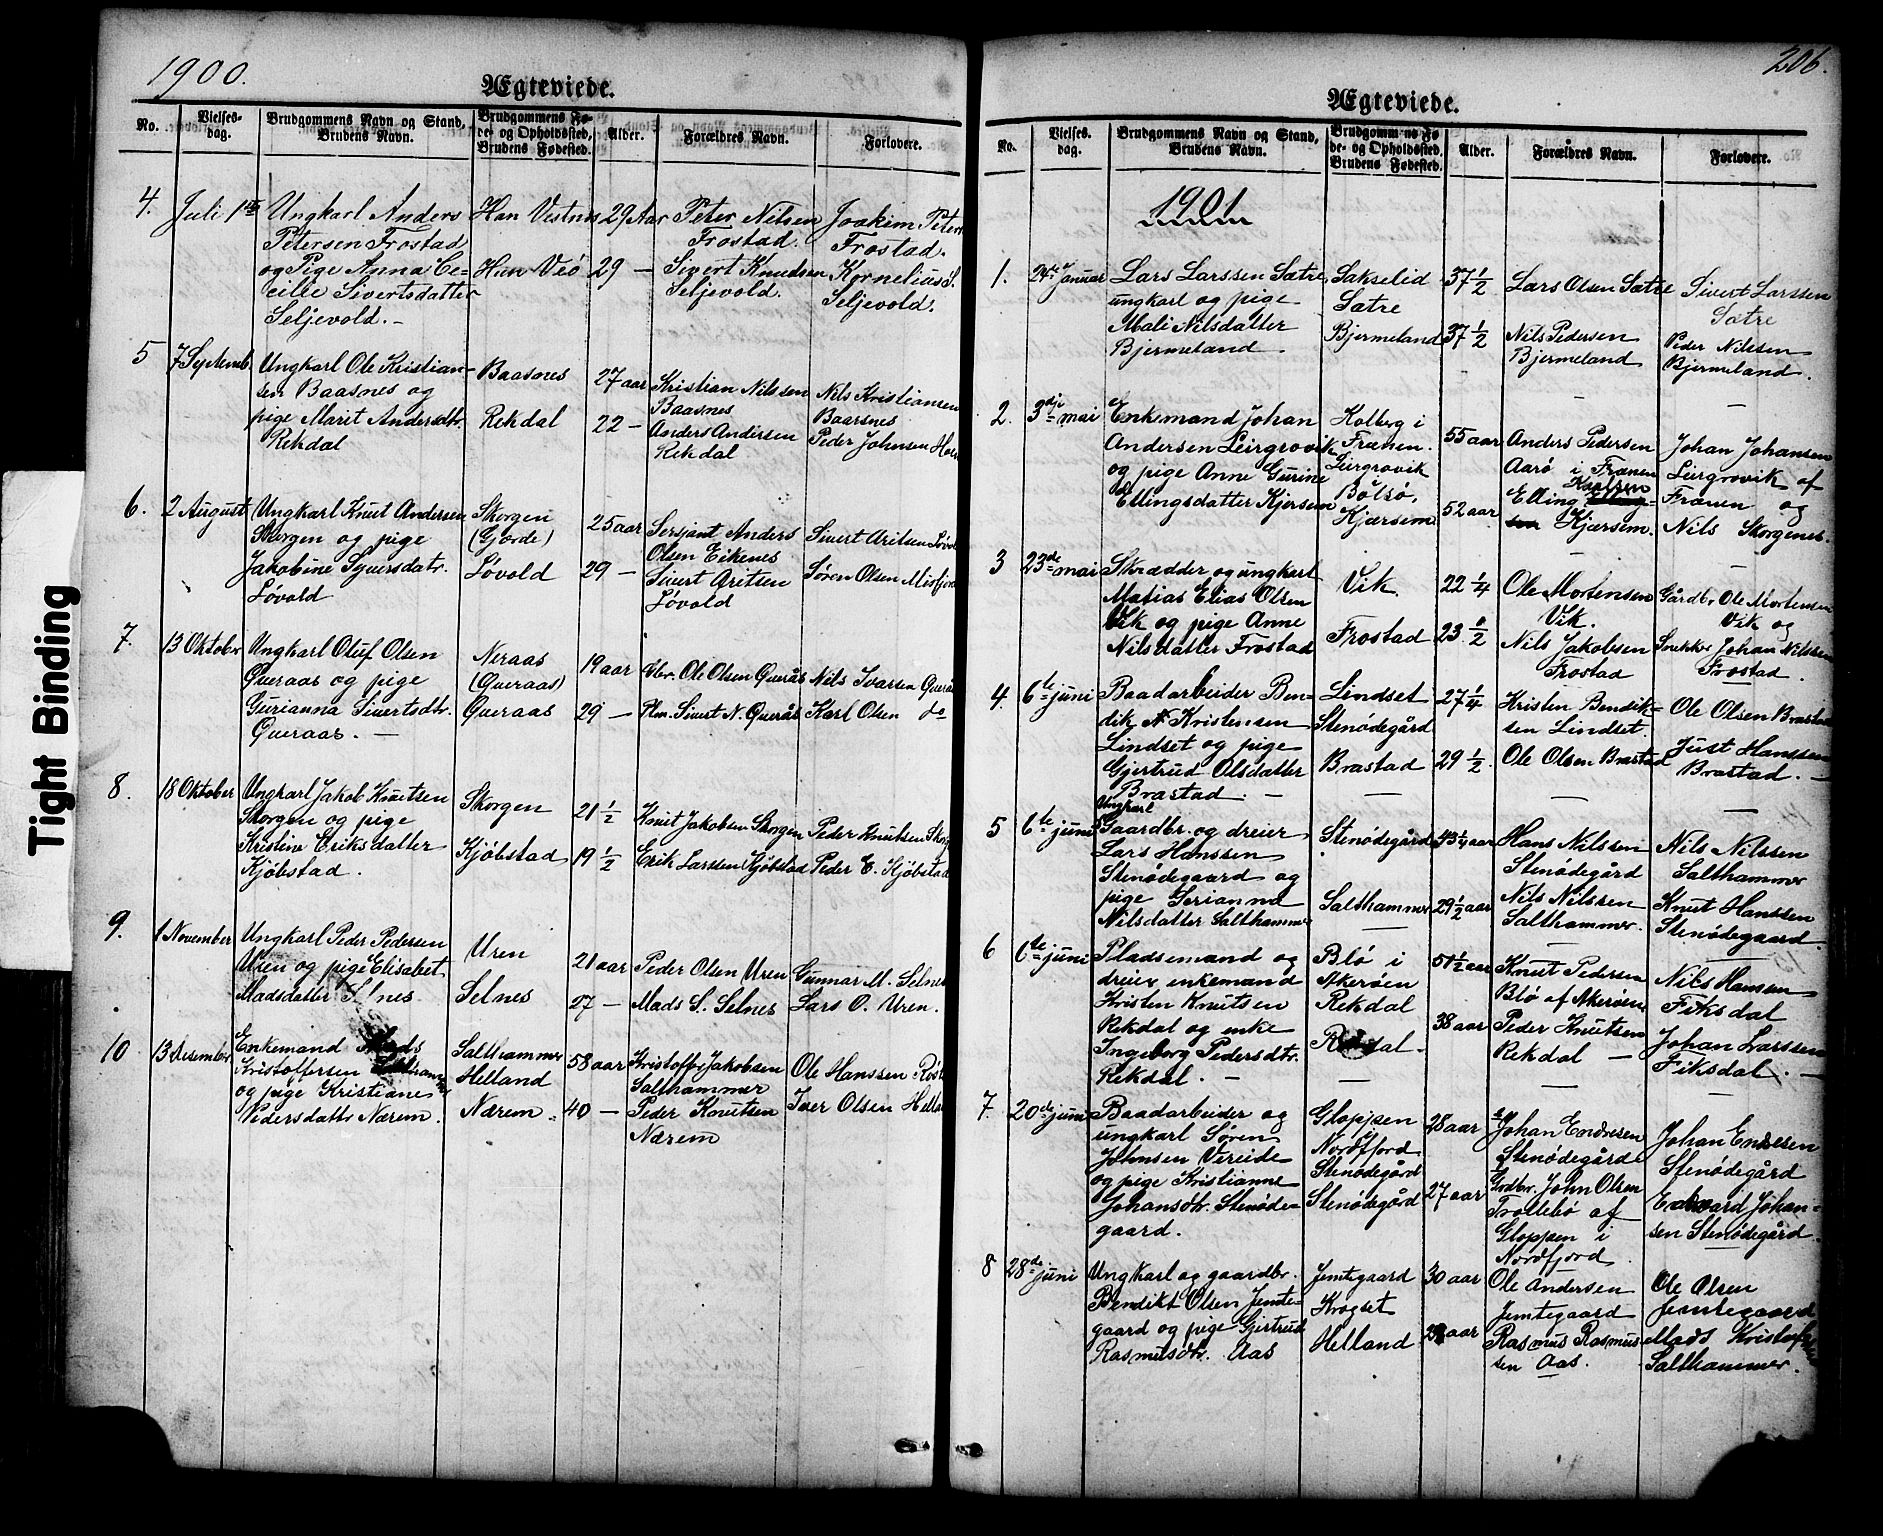 1900.
Ægteviede.
No.
Vielses-
dag.
Brudgommens Navn og Stand,
Brudens Navn.
Brudgommens Fø-
de- og Opholdssted,
Brudens Fødested.
Alder.
Forældres Navn.
Forlovere.
4.
Juli 1ste
Ungkarl Anders
Petersen Frostad
og Pige Anna Ce-
cilie Sivertsdatter
Seljevold. -
Han Vestnes
Hun Veö
29 Aar
29 -
Peter Nilsen
Frostad.
Sivert Knudsen
Seljevold.
Joakim Peters
Frostad.
Kornelius S.
Seljevold.
5
7 Septemb.
Ungkarl Ole Kristian-
sen Baasnes og
pige Marit Andersdtr.
Rekdal
Baasnes
Rekdal
27 aar
22 -
Kristian Nilssen
Baasnes
Anders Andersen
Rekdal
Nils Kristiansen
Baasnes
Peder Johnsen
6.
2 August
Ungkarl Knut Andersen
Skorgen og pige
Jakobine Syversdatr.
Lövold
Skorgen
(Gjørde)
Lövold
25 aar
29 -
Sersjant Anders
Olsen Eikenes
Sivert Aritsen
Lövold
Sivert Aritsen Løvol
Søren Olsen Misfjord
7.
13 Oktober
Ungkarl Oluf Olsen
Queraas og pige
Gurianna Sivertsdtr.
Queraas. -
Neraas
(Queraas)
Queraas
19 aar
29 -
Gbr. Ole Olsen Querås
Plm. Sivert N. Querås
Nils Ivarsen Querås
Karl Olsen do
8.
18 Oktober
Ungkarl Jakob Knutsen
Skorgen og pige
Kristine Eriksdatter
Kjøbstad.
Skorgen
Kjøbstad
21 1/2
19 1/2
Knut Jakobsen Skorgen
Erik Larssen Kjøbstad
Peder Knutsen Skorg
Peder E. Kjøbstad
9.
1 November
Ungkarl Peder Pedersen
Uren og pige Elisabet
Madsdatter Selnes
Uren
Selnes
21 aar
27 -
Peder Olsen Uren
Mads S. Selnes
Gunnar M. Selnes
Lars O. Uren.
10
13 Desember
Enkemand Mads
Kristoffersen Salthammer
og pige Kristiane
Pedersdattr Nærem.
Salthammer
Helland
Nærem.
58 aar
40 -
Kristoffer Jakobsen
Salthammer
Peder Knutsen
Nærem
Ole Hanssen
Iver Olsen Hellan
206.
Ægteviede.
No.
Vielses-
dag.
Brudgommens Navn og Stand,
Brudens Navn.
Brudgommens Fø-
de- og Opholdssted,
Brudens Fødested.
Alder.
Forældres Navn.
Forlovere.
1901
1.
24de Januar
Lars Larssen Sætre
ungkarl og pige
Mali Nilsdatter
Bjermeland.
Sakselid
Sætre
Bjermeland
37 1/2
37 1/2
Lars Olsen Sætre
Nils Pedersen
Bjermeland
Sivert Larssen
Sætre
Peder Nilssen
Bjermeland.
2.
3dje mai
Enkemand Johan
Andersen Leirgrovik
og pige Anne Gurine
Ellingsdatter Kjersem
Kolberg i
Frænen.
Leirgrovik
Bölsö,
Kjærsem
55 aar
52 aar
Anders Pedersen
Aarö i Frænen
Elling Knutsen
Kjærsem.
Johan Johansen
Leirgrovik af
Frænen og
Nils Skorgenes.
3
23de mai
Skrædder og ungkarl
Matias Elias Olsen
Vik og pige Anne
Nilsdatter Frostad
Vik.
Frostad
22 1/4
23 1/2
Ole Mortensen
Vik.
Nils Jakobsen
Frostad
Gårdbr. Ole Mortensen
Vik og
Snekker Johan Nilssen
Frostad.
4.
6te juni
Baadarbeider Ben-
dik N. Kristensen
Lindset og pige
Gjertrud Olsdatter
Brastad. -
Lindset
Stenødegård
Brastad
27 1/4
29 1/2
Kristen Bendik-
sen Lindset.
Ole Olsen Brastad
Ole Olsen Brastad
Just Hanssen
Brastad. -
5
6te juni
Ungkarl
Gaardbr. og dreier
Lars Hanssen
Stenødegaard og
pige Serianna
Nilsdatter Salthammer
Stenødegård
Salthammer
43 1/4 aar
29 1/2 aar
Hans Nilssen
Stenødegård
Nils Nilssen
Salthammer.
Nils Nilssen
Salthammer
Knut Hanssen
Stenødegaard.
6
6te juni
Pladsemand og
dreier enkemand
Kristen Knutsen
Rekdal og enke
Ingeborg Pedersdtr.
Rekdal. -
Blø i
Akerøen
Rekdal
Rekdal.
51 1/2 aar
38 aar
Knut Pedersen
Blø af Akerøen
Peder Knutsen
Rekdal -
Nils Hansen
Fiksdal
Johan Larssen
Fiksdal.
7.
20de juni
Baadarbeider og
ungkarl Søren
Johnsen Vereide
og pige Kristianne
Johansdtr. Stenøde-
gaard.
Gloppen
Nordfjord
Stenødegård
Stenødegård
28 aar
27 aar
2/ Johan Endresen
Stenødegårde
1/ Grdbr. John Olsen
Trollebö af
Gloppen i
Nordfjord
Johan Endresen
Stenødegård
Edvard Johan-
sen Stenødegård.
8
28de juni
Ungkarl og gaardbr.
Bendikt Olsen Jemte-
gaard og pige Gjertrud
Rasmusdtr. Aas
Jemtegaard
Krogset
Helland
30 aar
Ole Andersen
Jemtegaard
Rasmus Rasmus-
sen Aas.
Ole Olsen
Jemtegaard
Mads Kristofersen
Salthammer.
Tight Binding